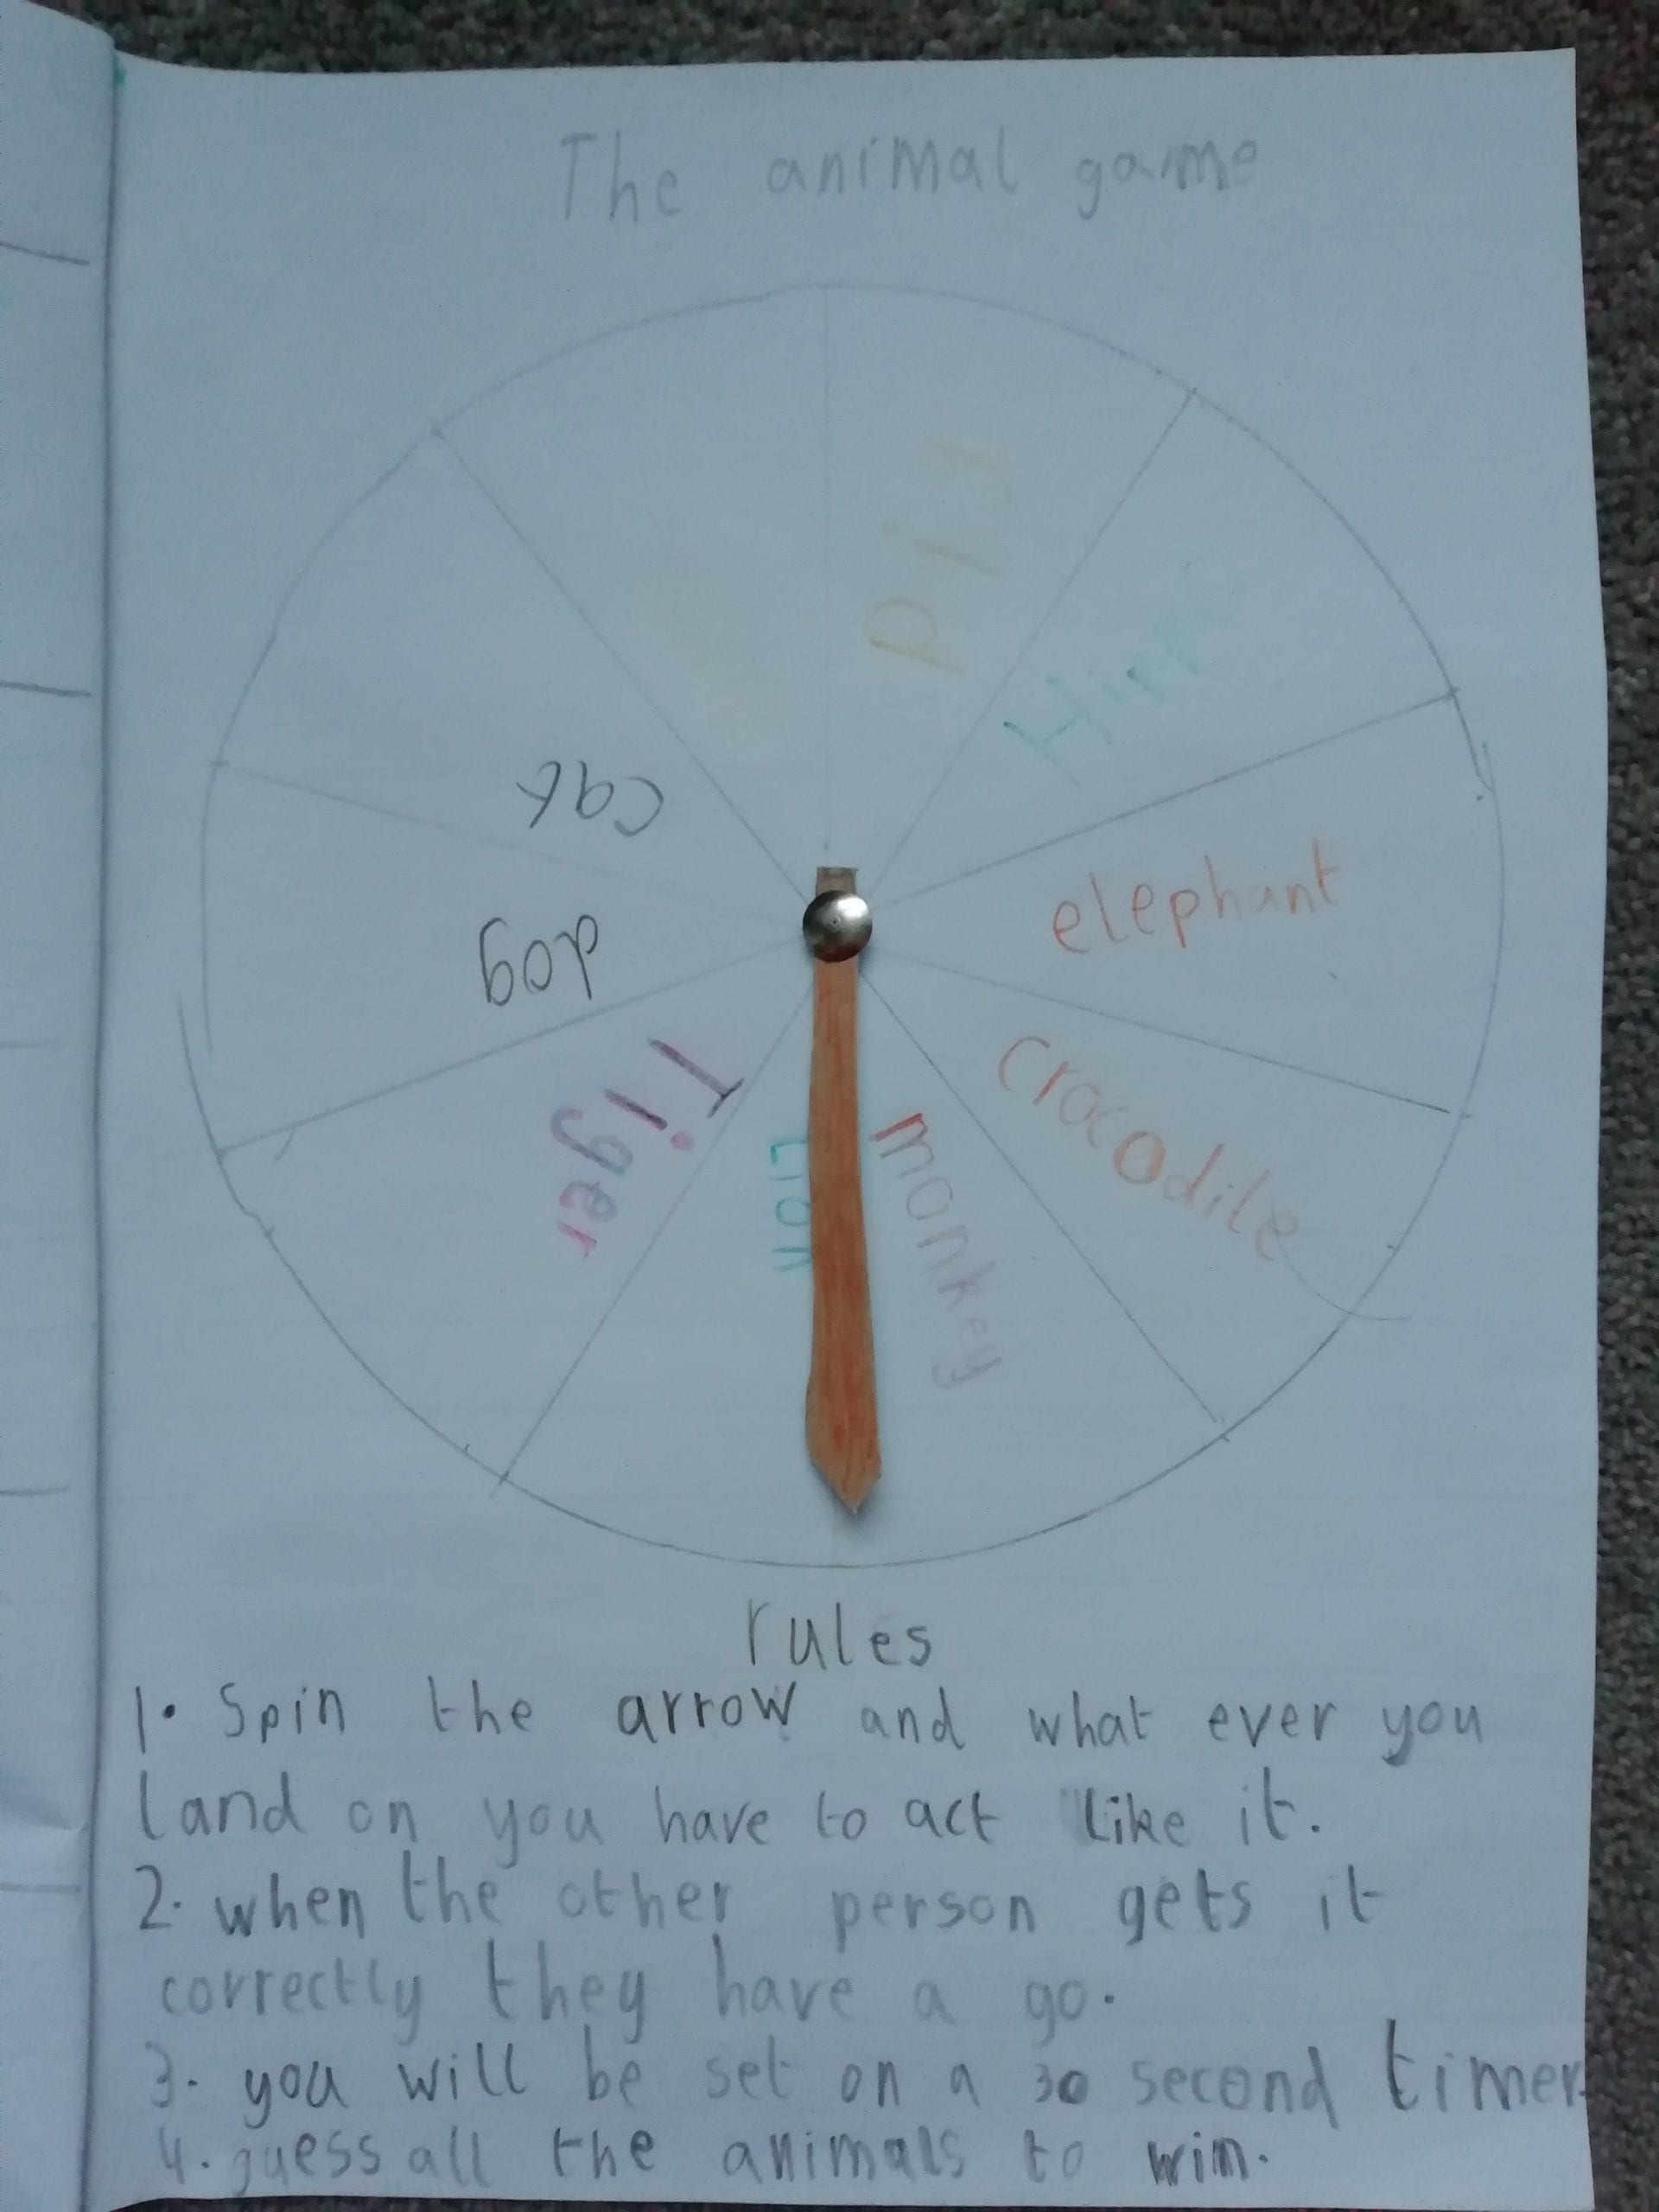 The animal game
pig
Hippo
elephant
crocodile
monkey
Lion
Tiger
dog
cat
rules
1. Spin the arrow and what ever you
land on you have to act like it.
2. when the other person gets it
correctly they have a go.
3. you will be set on a 30 second timer.
4. guess all the animals to win.